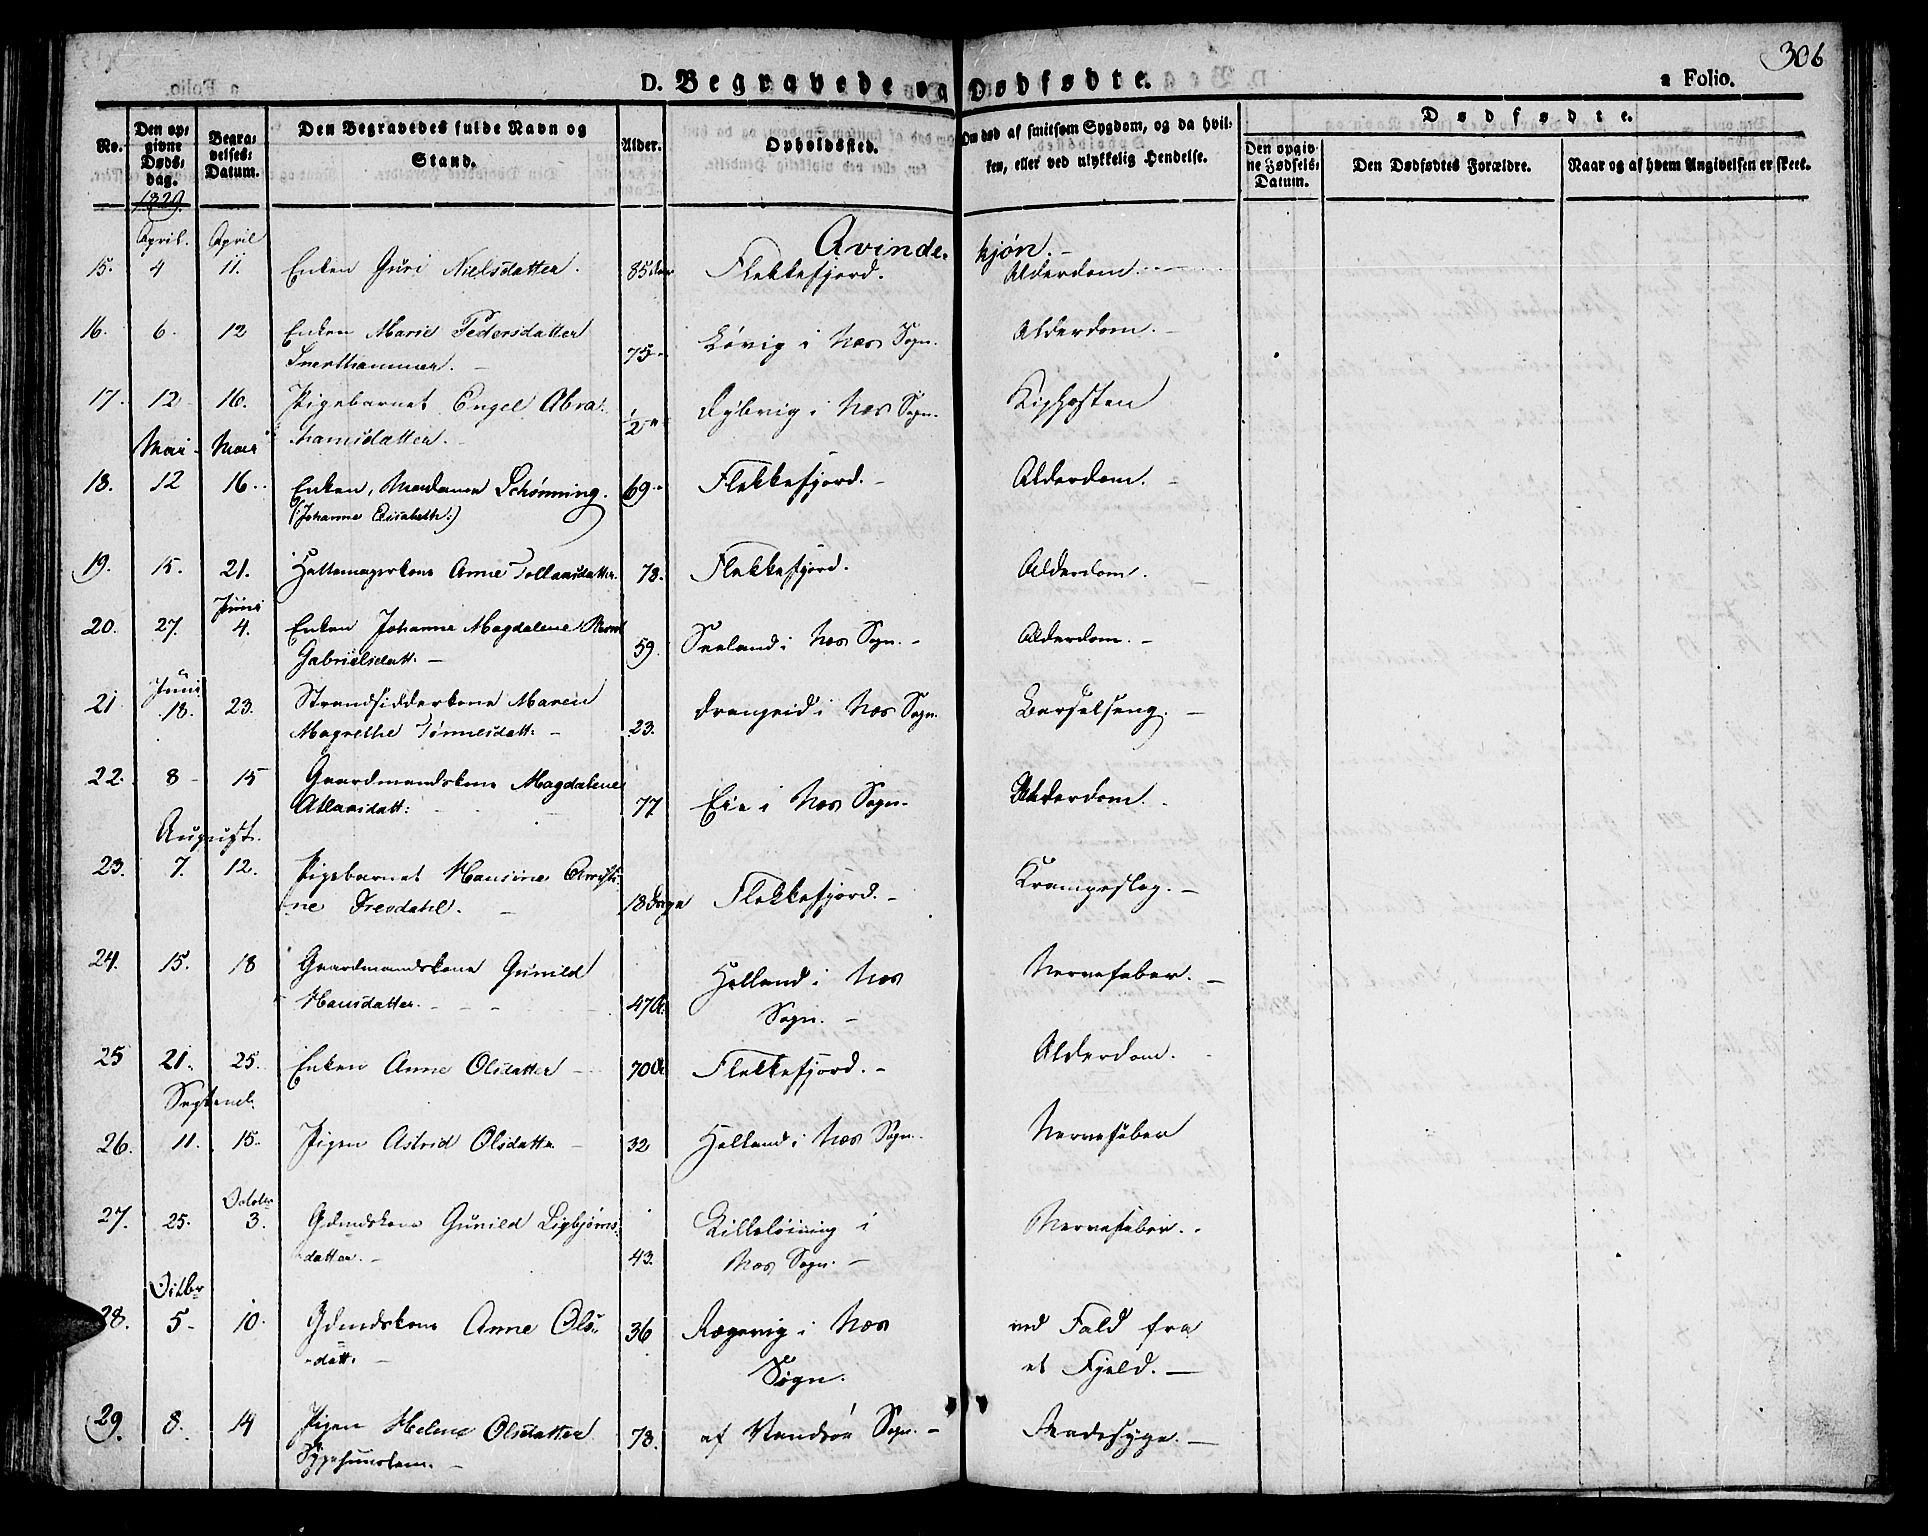 306
D. Begravede og Dødfødte.
a Folio.
No.
Den op-
givne
Døds-
dag.
Begra-
velses-
Datum.
Den Begravedes fulde Navn og
Stand.
Alder.
Opholdssted.
Om død af smitsom Sygdom, og da hvil-
ken, eller ved ulykkelig Hendelse.
Dødfødte.
Den opgiv-
ne Fødsels-
Datum.
Den Dødfødtes Forældre.
Naar og af hvem Angivelsen er skeet.
1829.
Qvinde- kjøn.
April. April
15. 4 11. Enken Guri Nielsdatter. 85 Flekkefjord. Alderdom.
16. 6. 12 Enken Marie Pedersdatter
75 Løvig i Næs Sogn. Alderdom.
17. 12 16. Pigebarnet Engel Abra-
hamsdatter. 1/2 Rybvig i Næs Sogn. Kighosten
Mai Mai
18. 12 16. Enken, Madame Schønning. 69 Flekkefjord. Alderdom.
(Johanne Elisabeth:)
19. 15. 21. Hattemagerkone Anne Tollaksdatter. 78. Flekkefjord. Alderdom.
Juni
20. 27. 4. Enken Johanne Magdalene
Gabrielsdatt. 59. Seeland i Næs Sogn. Alderdom.
Juni
21 18. 23. Strandsidderkone Maren
Magrethe Tønnesdatt. 23. Drangeid i Næs Sogn. Barselseng.
22. 8 15 Gaardmandskone Magdalene
Atlaksdatt: 77 Eie i Næs Sogn. Alderdom.
August.
23. 7. 12. Pigebarnet Hansine Christi-
ne Fresdahl. 18 Dage Flekkefjord. Krampeslag.
24. 15. 18 Gaardmandskone Gunild
Hansdatter. 47 A. Helland i Næs
Sogn. Nervefeber.
25 21. 25. Enken Anne Olsdatter 70 A. Flekkefjord. Alderdom.
Septemb.
26. 11. 15. Pigen Astrid Olsdatter 32 Helland i Næs Sogn. Nervefeber
October
27. 25. 3. Gdmdskone Gunild Sigbjørns-
datter. 43. Lilleløining i
Næs Sogn. Nervefeber.
Octbr
28. 5 10. Gdmdskone Anne Ols-
datt. 36 Ragevig i Næs
Sogn. ved Fald fra
et Fjeld.
29. 8. 14 Pigen Helene Olsdatter
78. af Vandsøe Sogn.